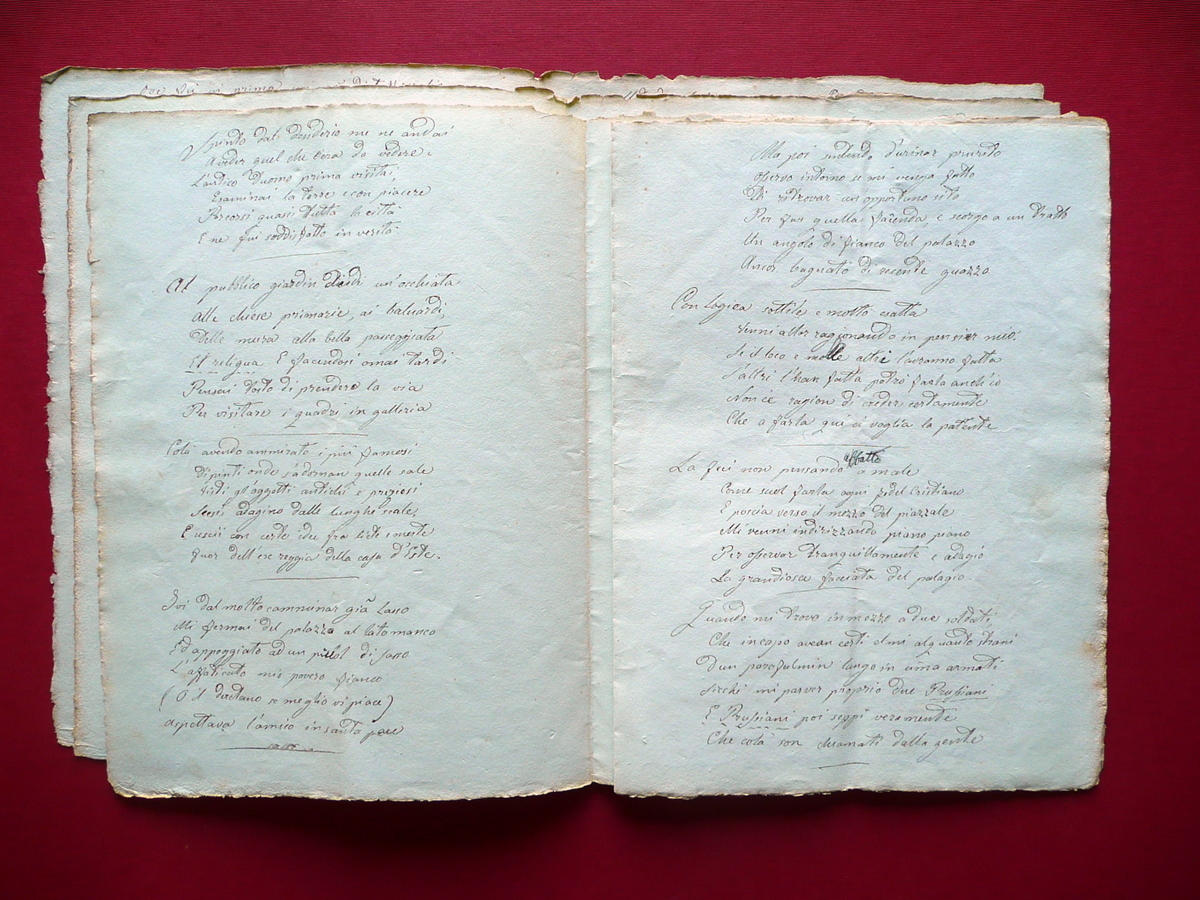 Spinto dal desiderio me ne andai
A veder quel che v'era da vedere.
L'antico Duomo prima visitai,
Esaminai la torre e con piacere
Percorsi quasi tutta la città
E ne fui soddisfatto in verità
Al pubblico giardin diedi un'occhiata
Alle chiese primarie, ai baluardi,
Delle mura alla bella passeggiata
Et reliqua E facendosi omai tardi
Pensai tosto di prendere la via
Per visitare i quadri in galleria
Colà avendo ammirato i più famosi
Dipinti onde s'adornan quelle sale
Visti gl'oggetti antichi e preziosi
Scesi adagino dalle lunghe scale,
E uscii con certe idee fra liete e meste
Fuor dell'ex reggia della casa d'Este.
Ivi dal molto camminar già lasso
Mi fermai del palazzo al lato manco
Ed appoggiato ad un pilol di sasso
L'affaticato mio povero fianco
(O il deretano se meglio vi piace)
Aspettava l'amico in santa pace
Ma poi sentendo d'urinar prurito
Osservo intorno se mi venga fatto
Di ritrovar un opportuno sito
Per far quella faccenda, e scorgo a un tratto
Un angolo di fianco del palazzo
Ancor bagnato di recente guazzo
Con logica sottile e molto esatta
Venni allor ragionando in pensier mio.
Se il loco è molle altri l'avranno fatta
S'altri l'han fatta potrò farla anch'io
Non c'è ragion di creder certamente
Che a farla qui ci voglia la patente
affatto
La feci non pensando a male
Come suol farla ogni fedel Cristiano
E poscia verso il mezzo del piazzale
Mi venni indirizzando piano piano
Per osservar tranquillamente e adagio
La grandiosa facciata del palagio
Quando mi trovo in mezzo a due soldati,
Che in capo avean certi elmi alquanto strani
D'un parafulmin lungo in cima armati
Sicchè mi parver proprio due Prussiani
E Prussiani poi seppi veramente
Che colà son chiamati dalla gente